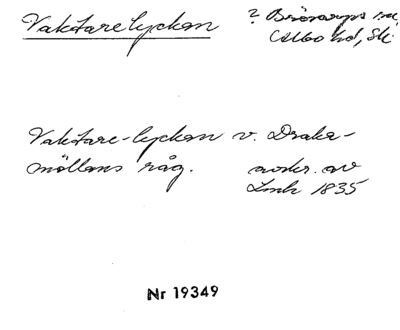 Vaktarelyckan
? Brösarps sn,
Albo hd, Sk.
Vaktare-lyckan v. Draka-
möllans råg. avskr. av
Lmk 1835
Nr 19349